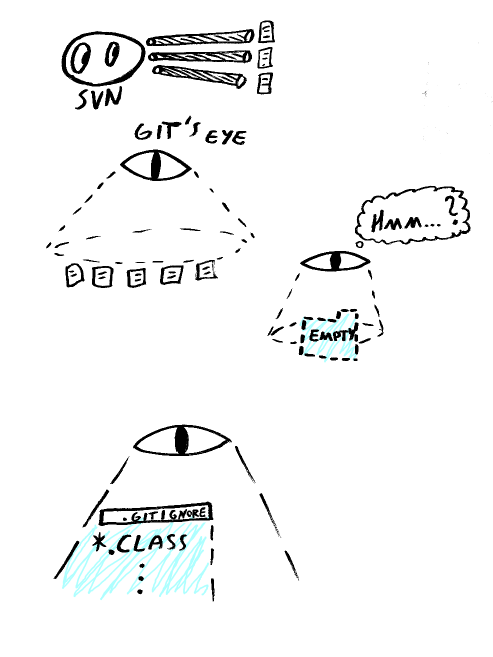 SVN
GIT'S EYE
Hmm...?
EMPTY
.GITIGNORE
*.CLASS